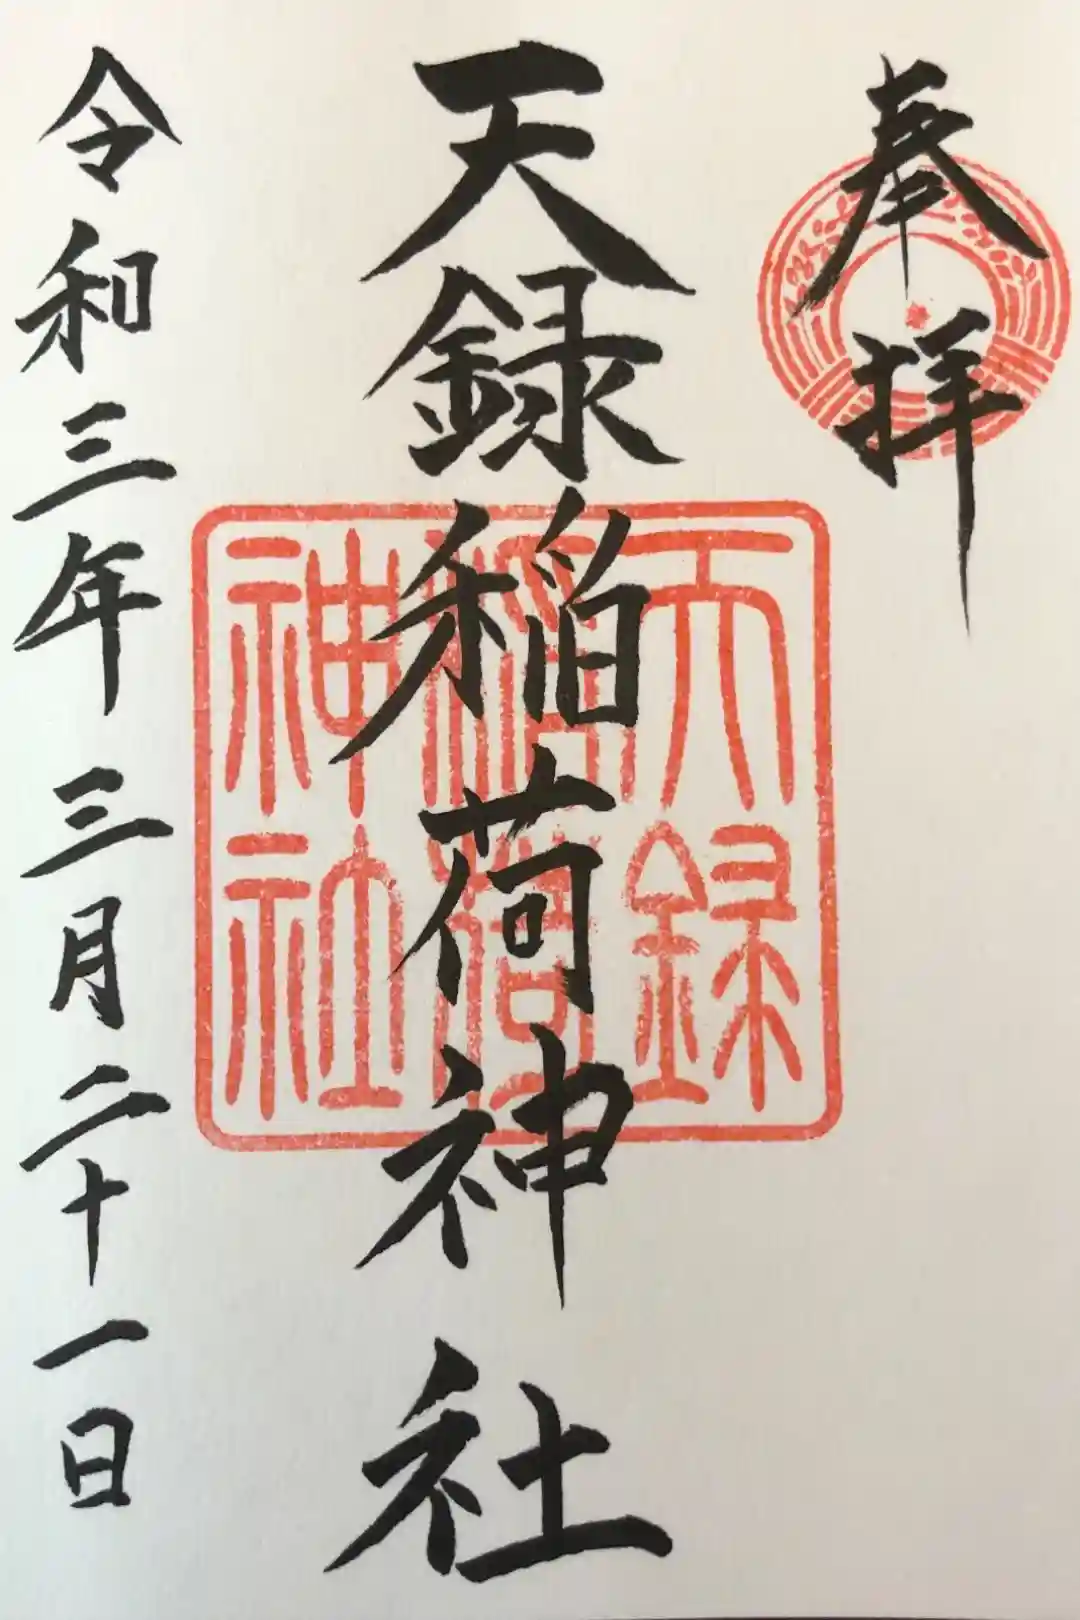 奉拝
天録稲荷神社
天録
稲荷
神社
令和三年三月二十一日